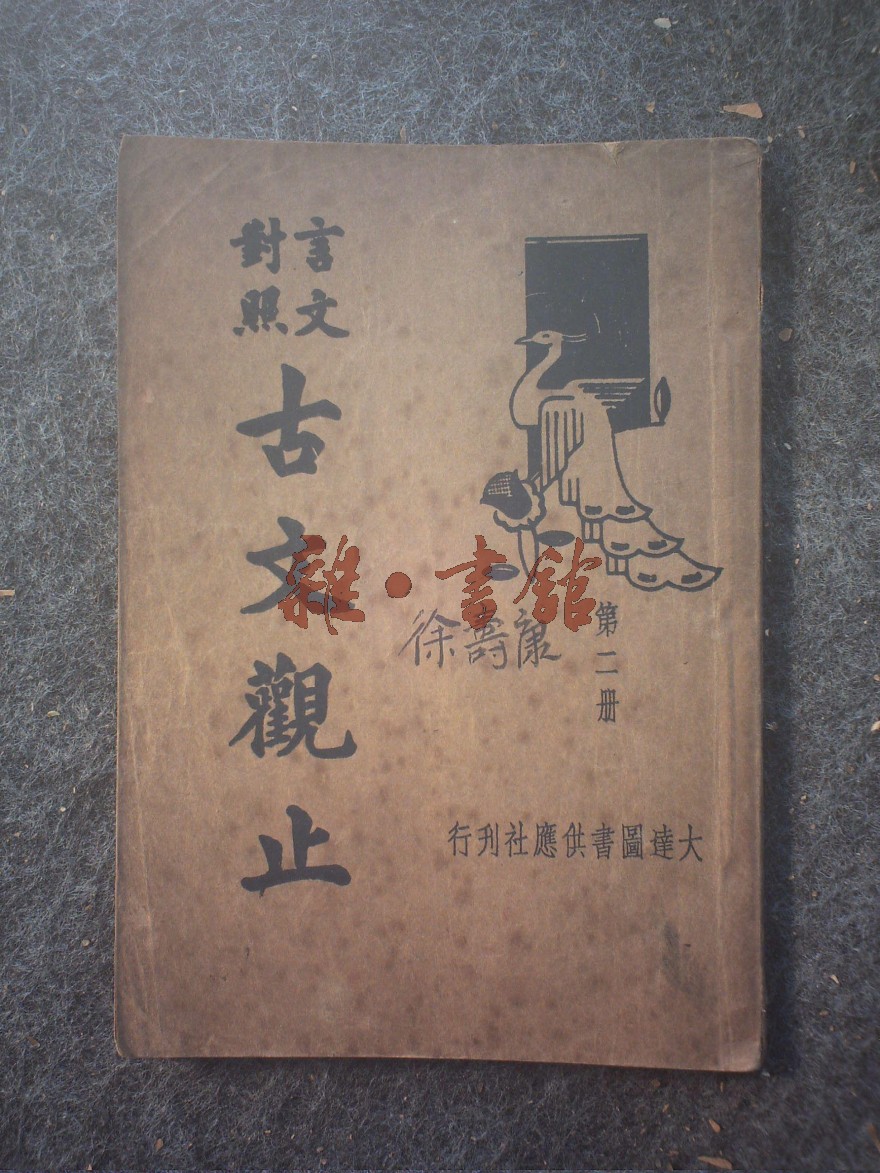 言文
對照
古文觀止
雜·書館
徐壽康
第二册
大達圖書供應社刊行